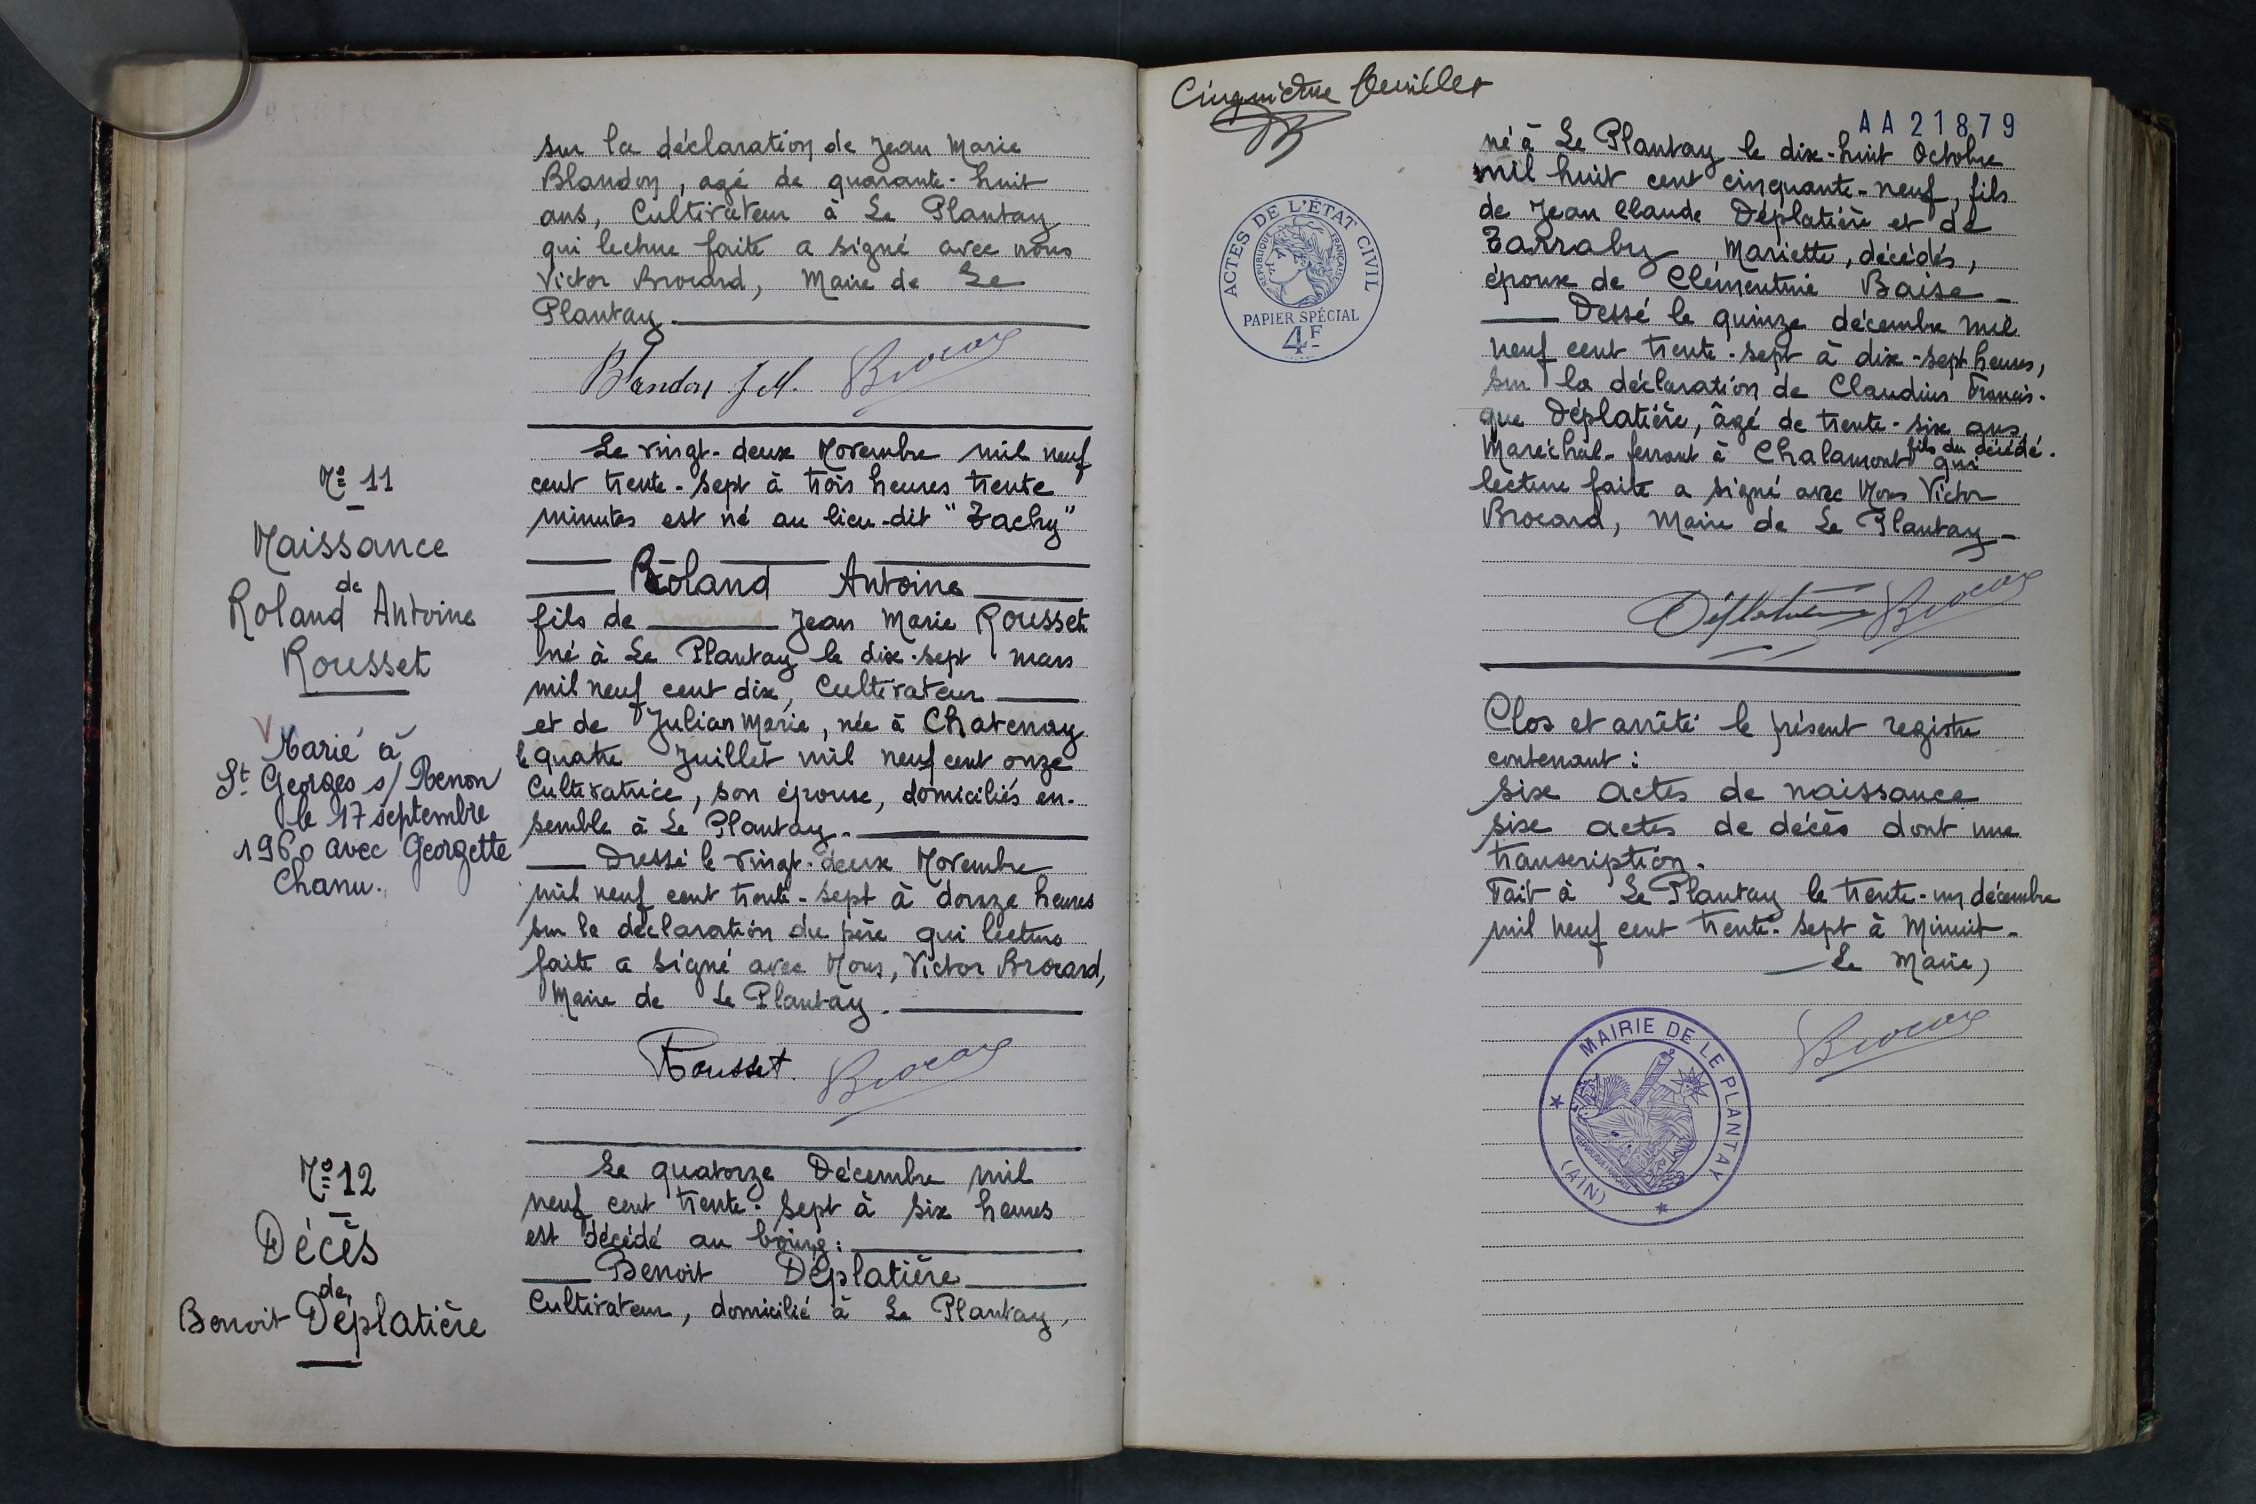 sur la déclaration de Jean Marie
Blandon, agé de quarante-huit
ans, Cultivateur à Le Plantay
qui lecture faite a signé avec nous
Victor Brocard, Maire de Le
Plantay.
Blandon J M. Brocard
Le vingt-deux Novembre mil neuf
cent trente-sept à trois heures trente
minutes est né au lieu-dit "Zachy"
Roland Antoine
fils de Jean Marie Rousset
né à Le Plantay le dix-sept mars
mil neuf cent dix, Cultivateur
et de Julian Marie, née à Chatenay
le quatre Juillet mil neuf cent onze
Cultivatrice, son épouse, domiciliés en-
semble à Le Plantay.
Dressé le vingt-deux Novembre
mil neuf cent trente-sept à douze heures
sur la déclaration du père qui lecture
faite a signé avec Nous, Victor Brocard,
Maire de Le Plantay.
Rousset. Brocard
Le quatorze Décembre mil
neuf cent trente-sept à six heures
est décédé au bourg:
Benoit Déplatière
Cultivateur, domicilié à Le Plantay,
N° 11
Naissance
de
Roland Antoine
Rousset
V
Marié à
St Georges s/ Renon
le 17 septembre
1960 avec Georgette
Chanu.
N° 12
Décès
de
Benoit Déplatière
Cinquième feuillet
AA21879
ACTES DE L'ÉTAT CIVIL
RÉPUBLIQUE FRANÇAISE
PAPIER SPÉCIAL
4F
né à Le Plantay le dix-huit Octobre
mil huit cent cinquante-neuf, fils
de Jean Claude Déplatière et de
Zarraby Mariette, décédés,
époux de Clémentine Baise
Dessé le quinze décembre mil
neuf cent trente-sept à dix-sept heures,
sur la déclaration de Claudius Francis-
que Déplatière, âgé de trente-six ans
Maréchal-ferrant à Chalamont fils du décédé. qui
lecture faite a signé avec Nous Victor
Brocard, Maire de Le Plantay
Déplatière Brocard
Clos et arrêté le présent registre
contenant:
six actes de naissance
six actes de décès dont une
transcription.
Fait à Le Plantay le trente-un décembre
mil neuf cent trente-sept à Minuit-
Le Maire,
Brocard
MAIRIE DE LE PLANTAY
(AIN)
RÉPUBLIQUE FRANÇAISE